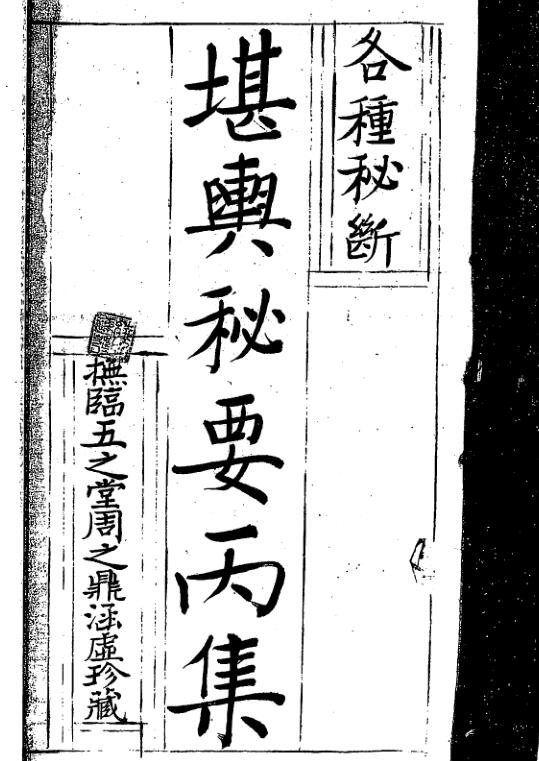 各種秘斷
堪輿秘要丙集
撫臨五之堂周之鼎涵虛珍藏